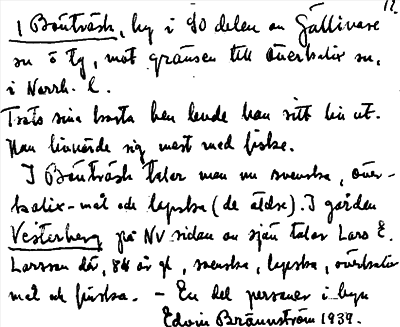 12.
I Bönträsk, by i SO delen av Gällivare
sn ö tg, mot gränsen till Överkalix sn,
i Norrb. l.
Trots sina korta ben levde han sitt liv ut.
Han livnärde sig mest med fiske.
I Bönträsk talar man nu svenska, över-
kalix-mål och lapska (de äldre). I gården
Vesterberg på NV sidan av sjön talar Lars E.
Larsson där, 84 år gl, svenska, lapska, överkalix
mål och finska. - En del personer i byn
Edvin Brännström 1939.